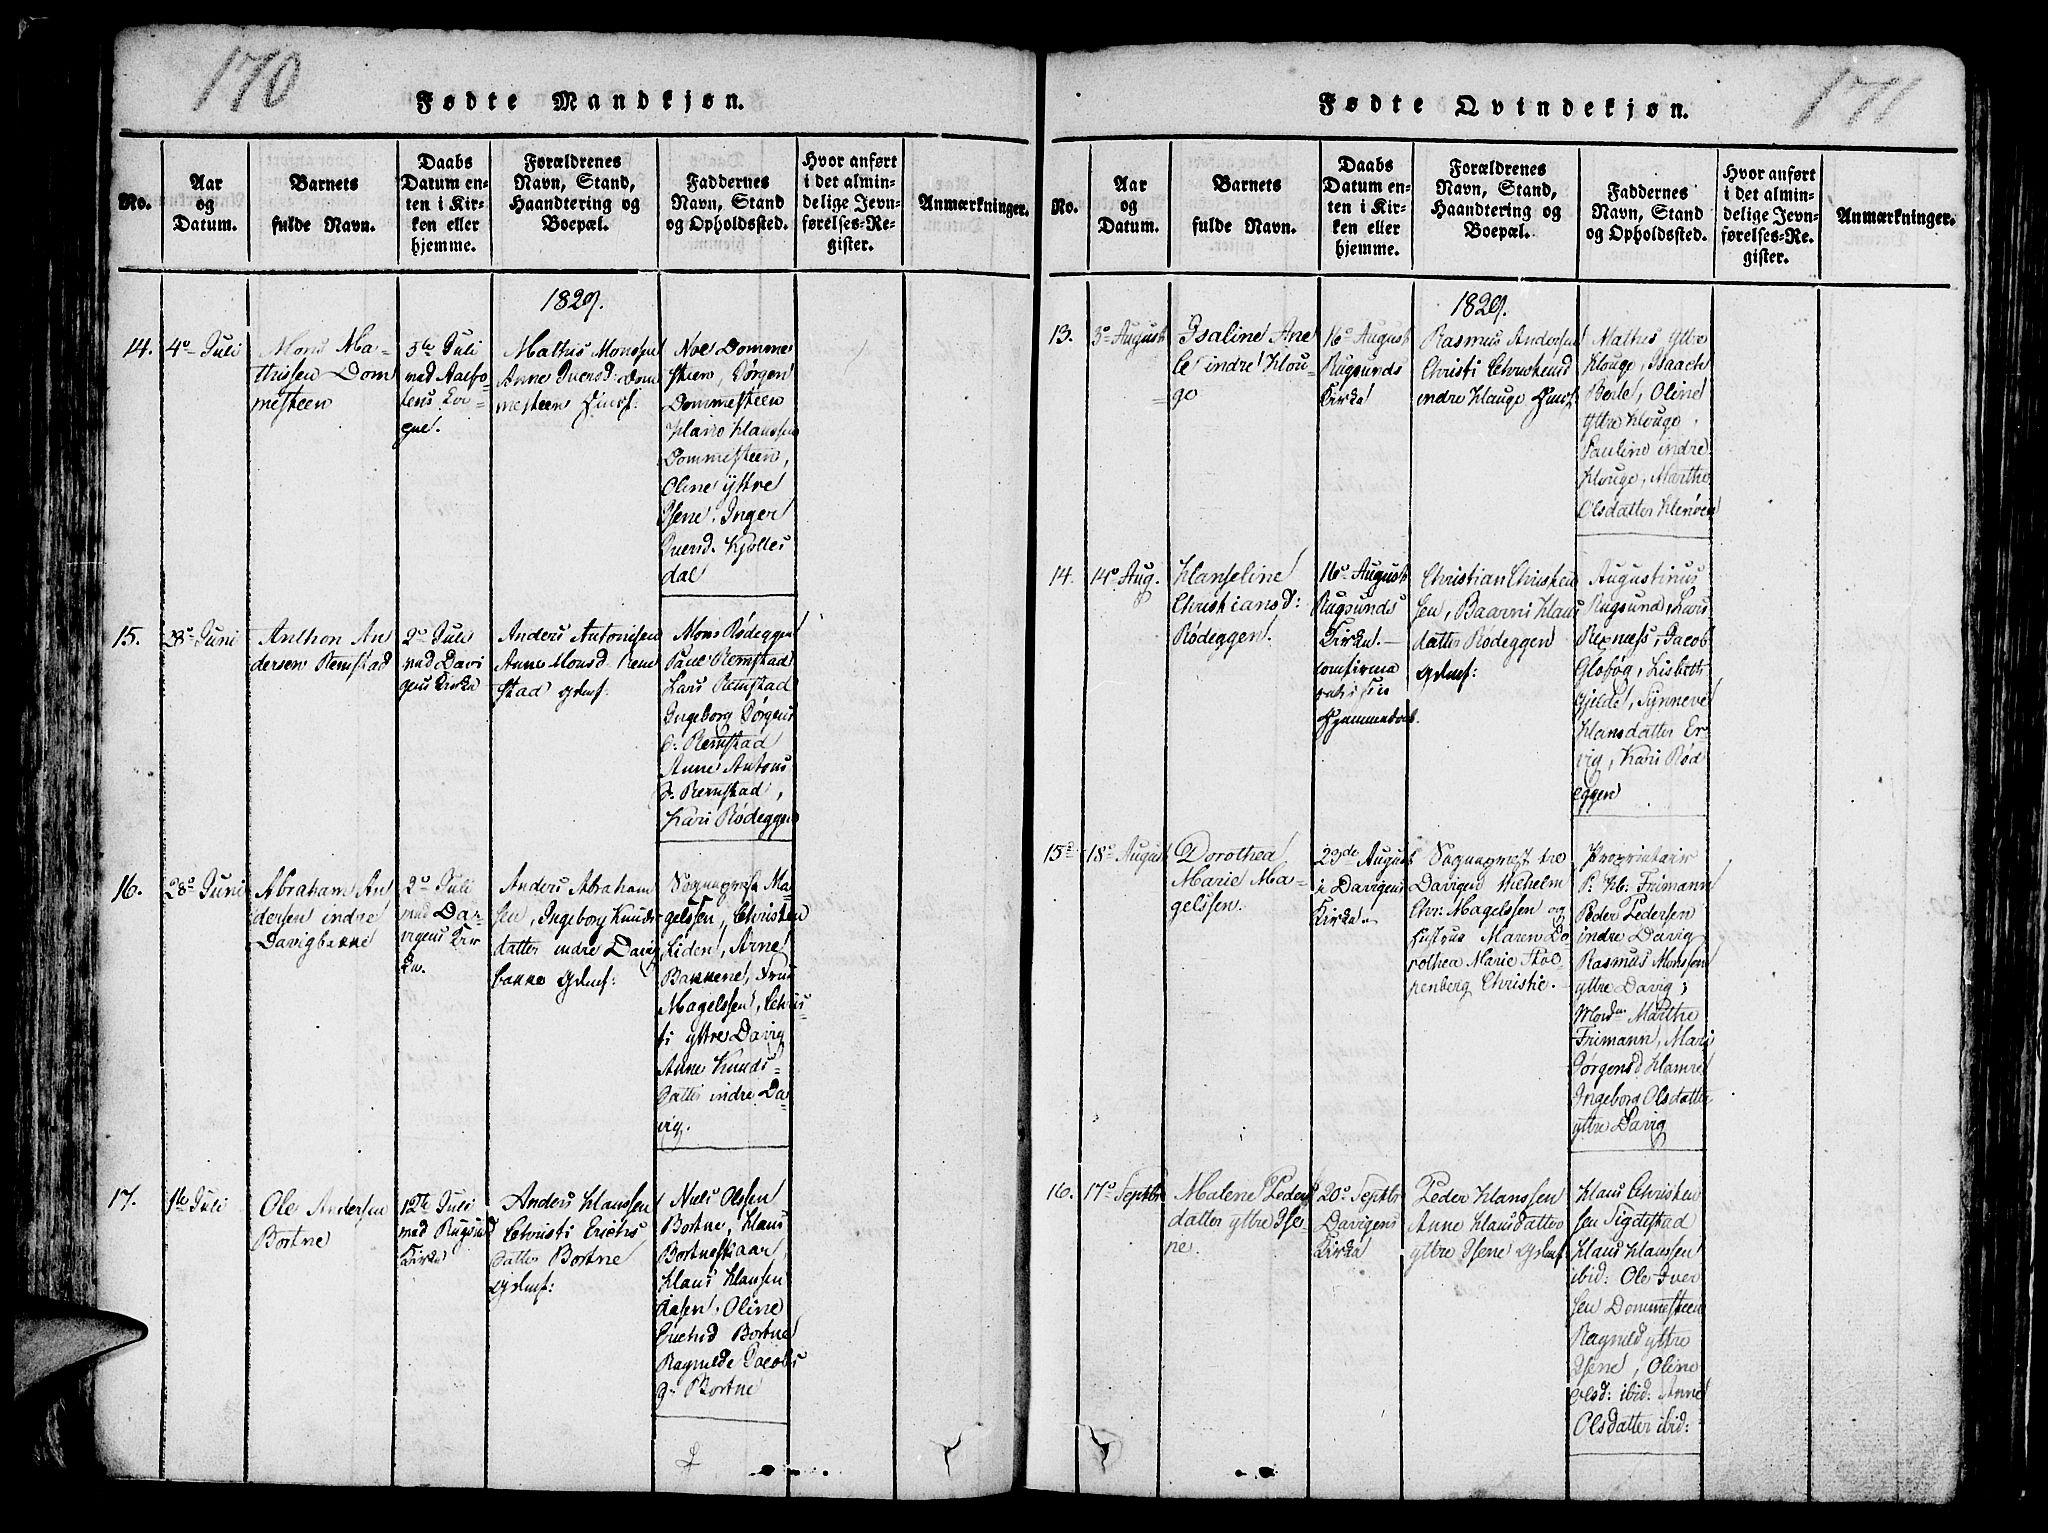 170
Fødte Mandkjøn.
No.
Aar
og
Datum.
Barnets
fulde Navn.
Daabs
Datum en-
ten i Kir-
ken eller
hjemme.
Forældrenes
Navn, Stand,
Haandtering og
Boepæl.
Faddernes
Navn, Stand
og Opholdssted.
Hvor anført
i det almin-
delige Jevn-
førelses-Re-
gister.
Anmærkninger.
1829.
14.
4de Juli
Mons Ma-
thissen Dom
mesteen
5te Juli
ved Aalfo-
tens Kir-
Mathis Monssen
Anne Iversd: Dom
mesteen
Noe Domme
steen, Jørgen
Dommesteen
Hans Hanssen
Dommesteen,
Oline yttre
Isene, Inger
Iversd. Kjølles
dal
15.
28de Juni
Anthon An
dersen Remstad
2de Juli
ved Davi
gens Kirke
Anders Antonisen
Anne Monsd. Rem
stad
Mons Rødeggen
Paul Remstad
Lars Remstad
Ingeborg Jørgens
d: Remstad
Anne Antons
d: Remstad,
Kari Rødeggen
16.
28de Juni
Abraham An
dersen indre
Davigbakke
2de Juli
ved Da-
vigens Kir
ke.
Anders Abraham
sen, Ingeborg Knuds-
datter indre Davig
bakke
Sognepræst Ma-
gelssen, Christen
Liden, Arne
Bakkene, Frue
Magelssen, Chris-
ti yttre Davig
Anne Knuds-
datter indre Da-
vig.
17.
1te Juli
Ole Andersen
Bortne
12te Juli
ved Rugsund
Kirke
Anders Hanssen
Christi Erichs
datter Bortne
Niels Olssen
Bortne, Hans
Bortneskaar,
Hans Hansen
Aasen, Oline
Erichsd Bortne
Ragnilde Jacobs
d: Bortne
171
Fødte Qvindekjøn.
No.
Aar
og
Datum.
Barnets
fulde Navn.
Daabs
Datum en-
ten i Kir-
ken eller
hjemme.
Forældrenes
Navn, Stand,
Haandtering og
Boepæl.
Faddernes
Navn, Stand
og Opholdssted.
Hvor anført
i det almin-
delige Jevn-
førelses-Re-
gister.
Anmærkninger.
1829.
13.
3de August
Isaline Ane
indre Hou-
ge
16de August
Rugsunds
Kirke
Rasmus Andersen
Christi Christensd
indre Houge
Mathis yttre
Houge, Isaach
Berle, Oline
yttre Houge,
Pauline indre
Houge, Marthe
Olsdatter
14.
14de Aug.
Hanseline
Christiansd:
Rødeggen.
16de August
Rugsunds
Kirke. –
Hjemmedaab.
Christian Christen
sen, Baarni Hans
datter Rødeggen
Augustinus
Rugsund, Lars
Rexnæss, Jacob
Lisbeth
Gjelde, Synneve
Hansdatter Er
vig, Kari Rød
eggen
15de
18de August
Dorothea
Marie Ma-
gelssen.
23de August
i Davigens
Kirke.
Sognepræst til
Davigen Wilhelm
Chr: Magelssen og
Hustrue Maren Do-
rothea Marie Stol-
tenberg Christie. –
Proprietair
P. Hb: Frimann
Peder Pedersen
indre Davig
Rasmus Monssen
yttre Davig;
Marthe
Frimann, Mari
Jørgensd Hamre
Ingeborg Olsdatter
yttre Davig
16.
17de Septbr
Malene Peders
datter yttre Ise-
ne.
20de Septbr
Davigens
Kirke
Peder Hanssen
Anne Hansdatter
yttre Isene
Hans Christen
sen Sigdestad
Hans Hanssen
ibid: Ole Iver
sen Dommesteen
Ragnild yttre
Isene, Oline
Olsd: ibid: Anne
Olsdatter ibid: